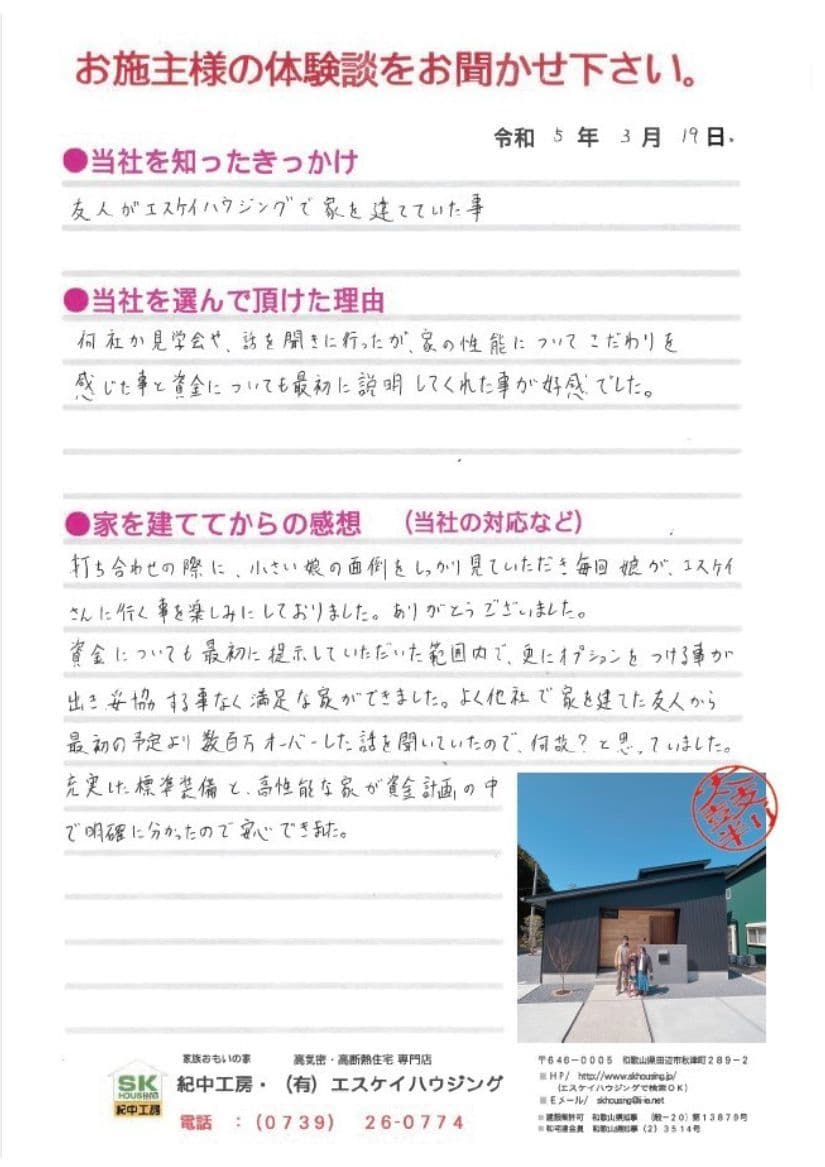 お施主様の体験談をお聞かせ下さい。
令和 5 年 3 月 19 日.
●当社を知ったきっかけ
友人がエスケイハウジングで家を建てていた事
●当社を選んで頂けた理由
何社か見学会や、話を聞きに行ったが、家の性能についてこだわりを
感じた事と資金についても最初に説明してくれた事が好感でした。
●家を建ててからの感想 (当社の対応など)
打ち合わせの際に、小さい娘の面倒をしっかり見ていただき毎回娘が、エスケイ
さんに行く事を楽しみにしておりました。ありがとうございました。
資金についても最初に提示していただいた範囲内で、更にオプションをつける事が
出き妥協する事なく満足な家ができました。よく他社で家を建てた友人から
最初の予定より数百万オーバーした話を聞いていたので、何故?と思っていました。
充実した標準装備と、高性能な家が資金計画の中
で明確に分かったので安心できました。
家族おもいの家 高気密・高断熱住宅 専門店
SK
HOUSING
紀中工房
紀中工房・(有)エスケイハウジング
電話 :(0739) 26-0774
〒646-0005 和歌山県田辺市秋津町289-2
■HP/ http://www.skhousing.jp/
(エスケイハウジングで検索OK)
■Eメール/ skhousing@i-ie.net
■建設業許可 和歌山県知事 (般-20)第13879号
■和宅建会員 和歌山県知事(2)3514号